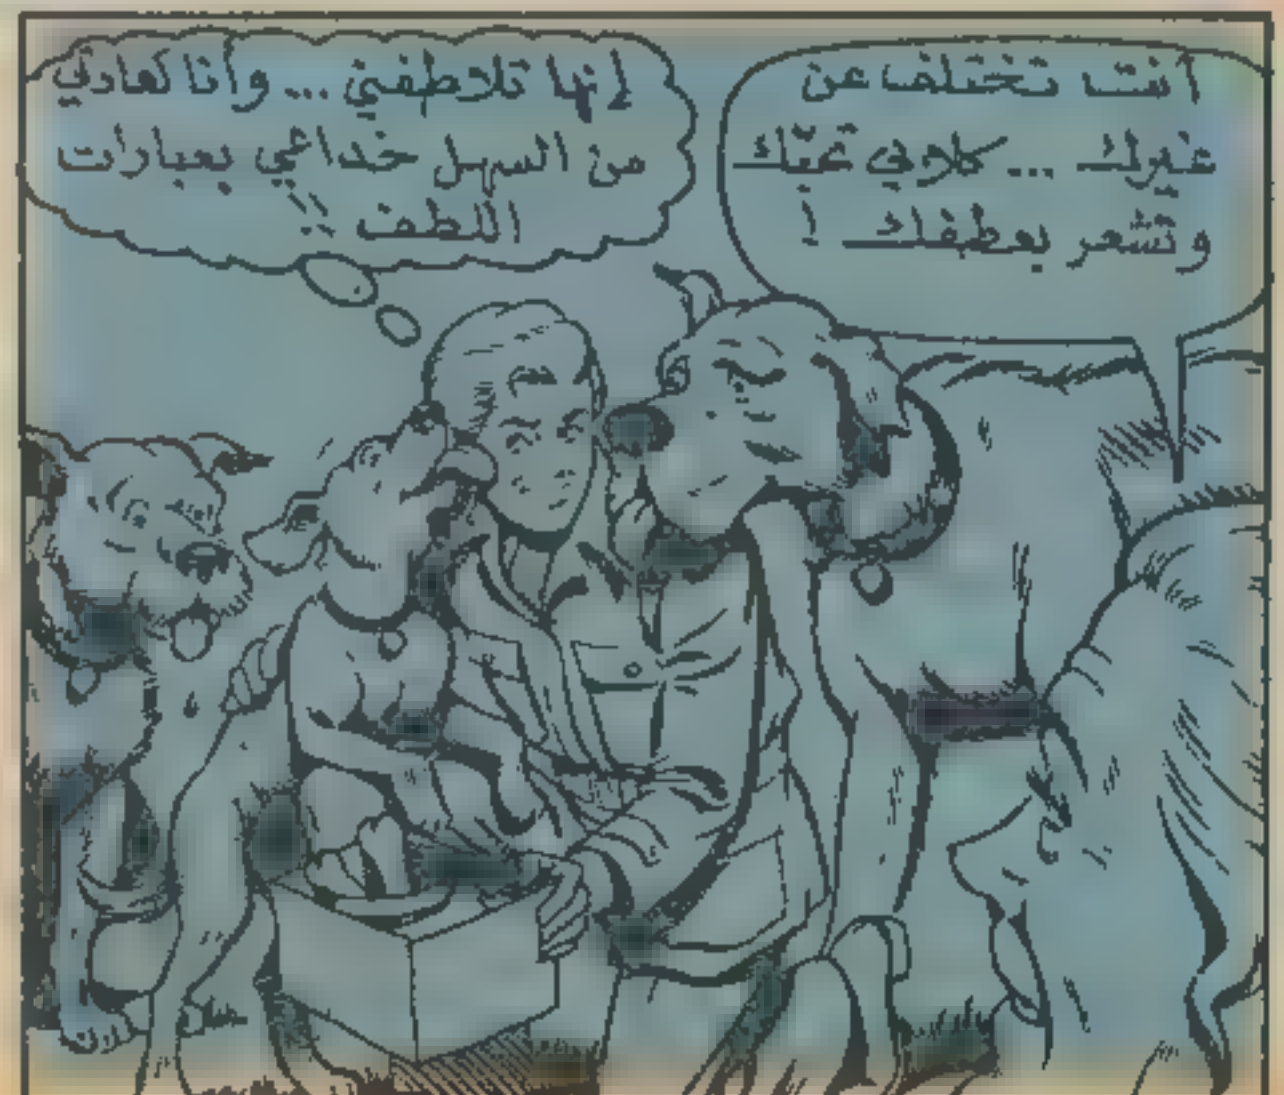 أنت تختلف عن
غيرك ... كلابي تحبّك
وتشعر بعطفك !
إنها تلاطفني ... وأنا كعادتي
من السهل خداعي بعبارات
اللطف !!